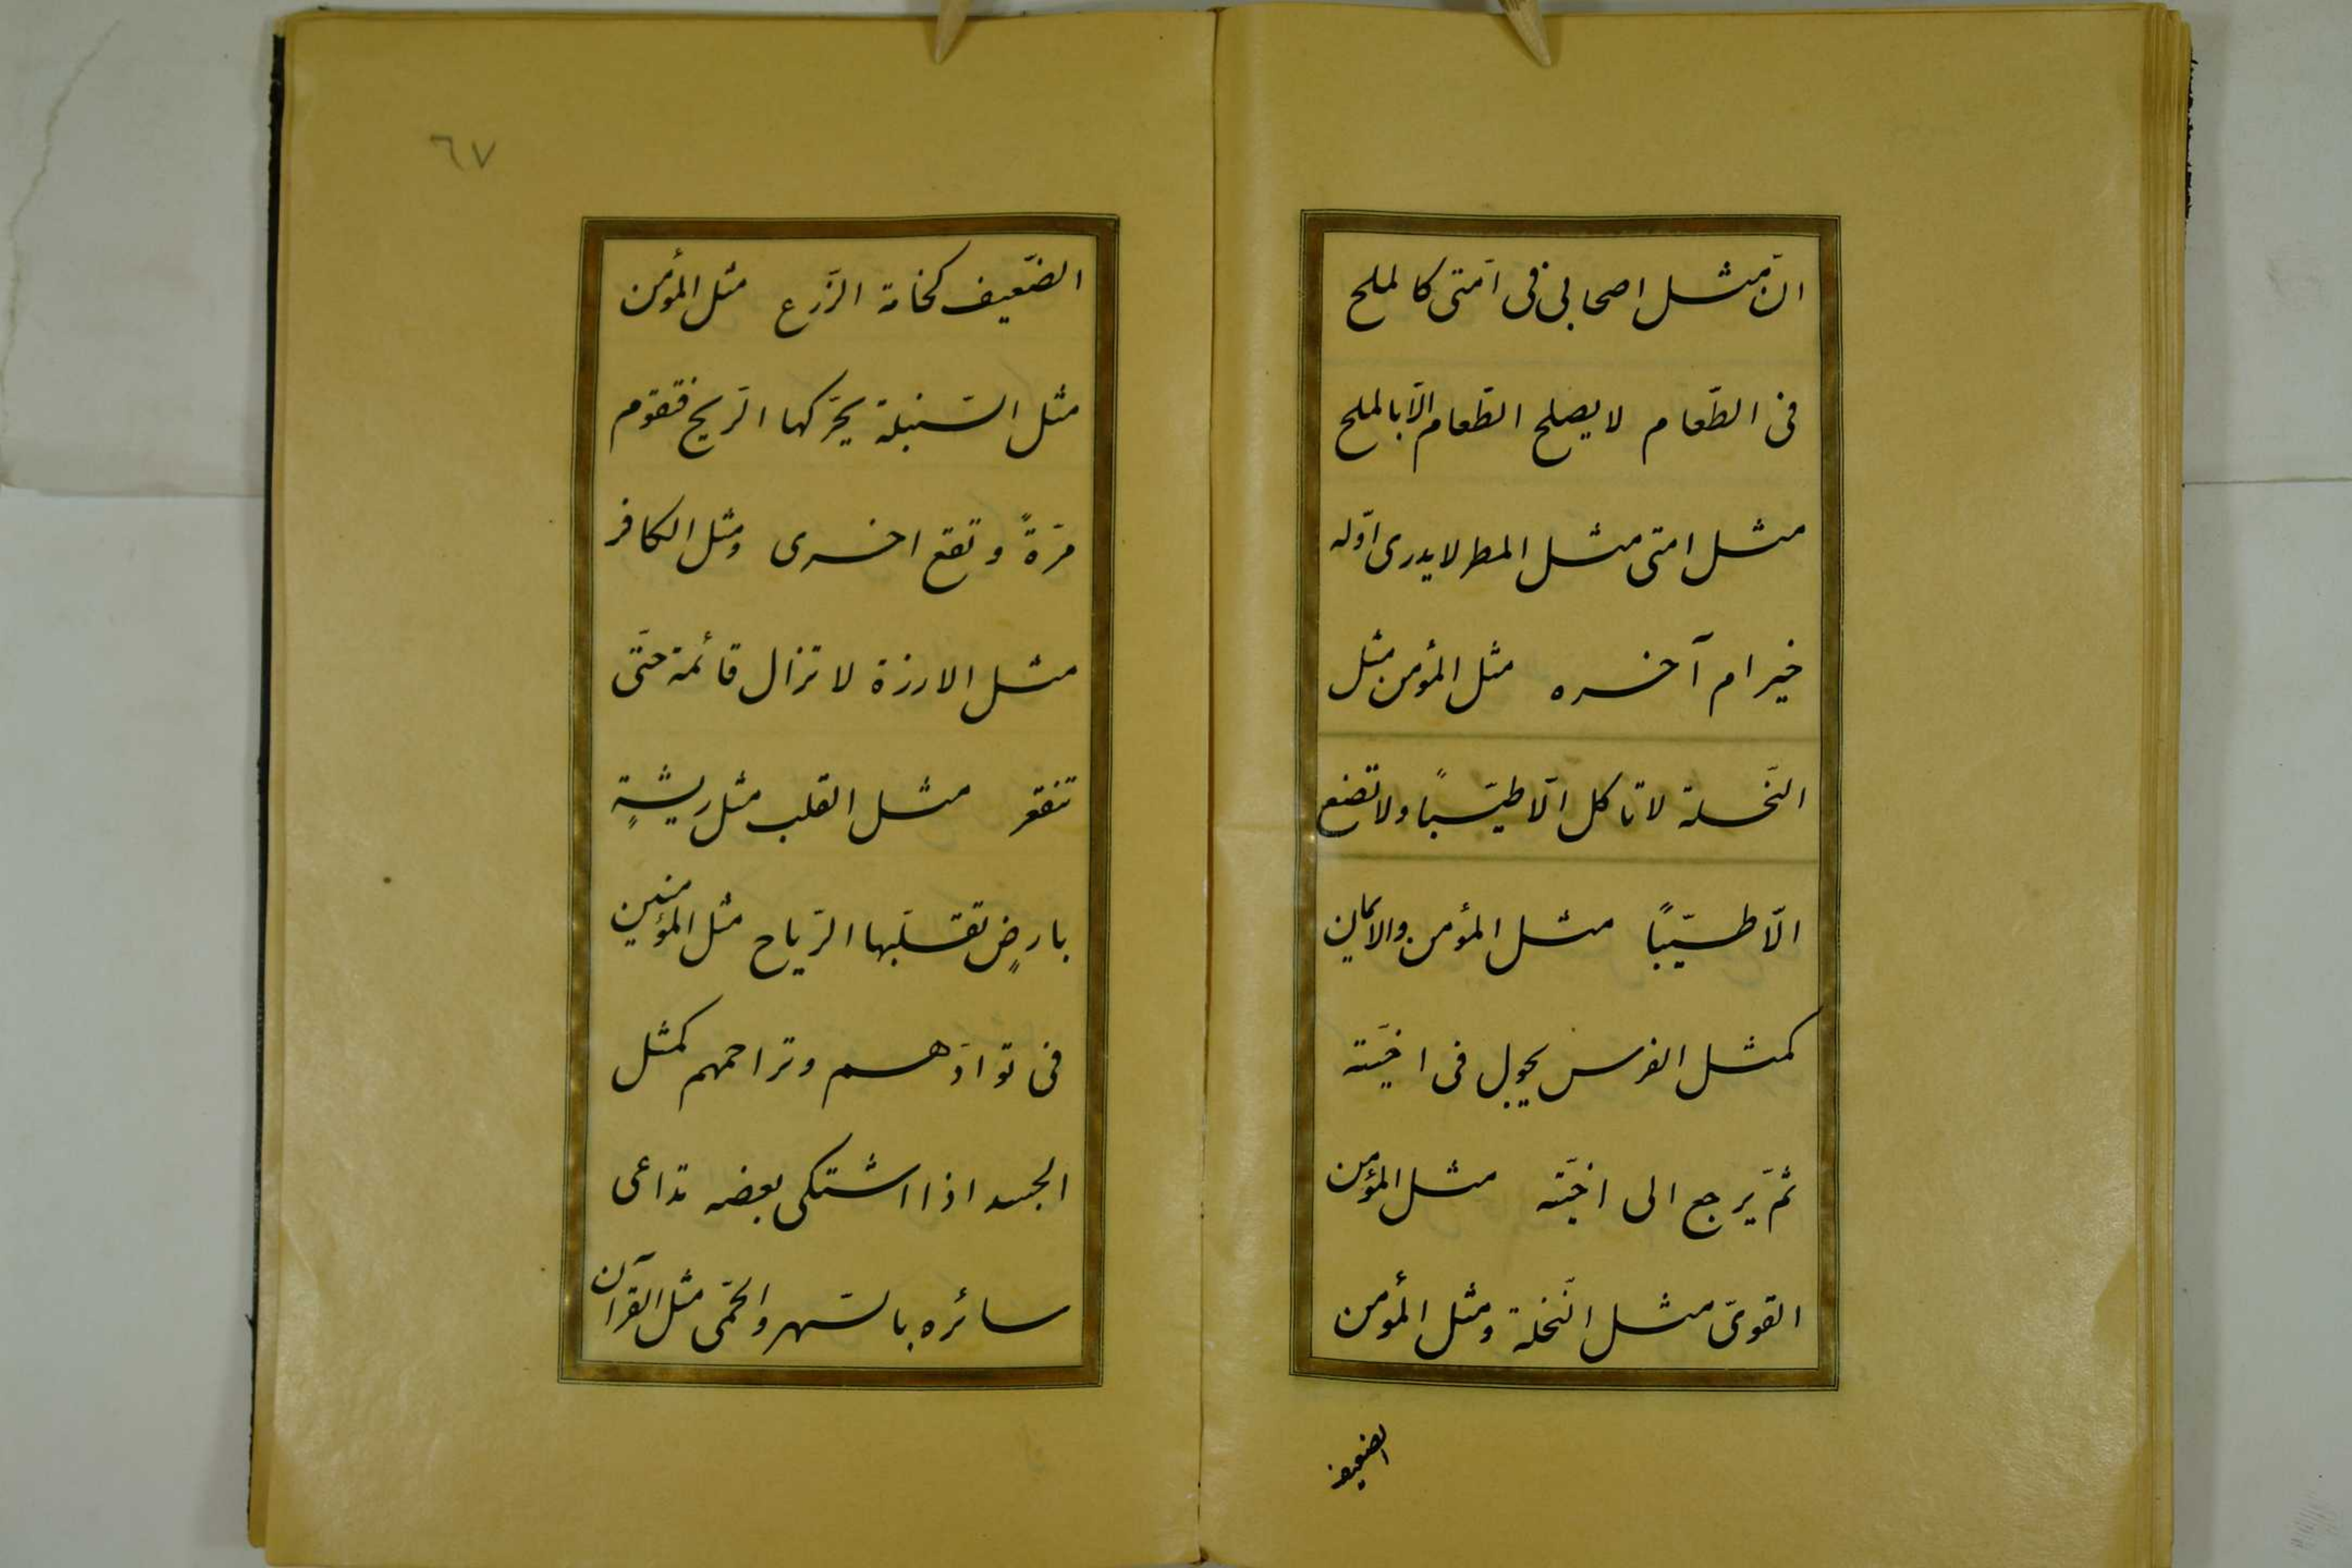 انّ مثل اصحابى فى امّتى كالملح
فى الطّعام لا يصلح الطّعام الّا بالملح
مثل امتى مثل المطر لا يدرى اوّله
خير ام آخره مثل المؤمن مثل
النّحلة لا تاكل الّا طيّبًا ولا تضع
الّا طيّبًا مثل المؤمن والايمان
كمثل الفرس يجول فى اخيّته
ثمّ يرجع الى اخيّته مثل المؤمن
القوىّ مثل النّخلة ومثل المؤمن
الضعيف
٦٧
الضّعيف كخامة الزّرع مثل المؤمن
مثل السّنبلة يحرّكها الرّيح فتقوم
مرّةً وتقع اخرى ومثل الكافر
مثل الارزة لا تزال قائمة حتّى
تنقعر مثل القلب مثل ريشةٍ
بارضٍ تقلّبها الرّياح مثل المؤمنين
فى توادّهم وتراحمهم كمثل
الجسد اذا اشتكى بعضه تداعى
سائره بالسّهر والحمّى مثل القرآن